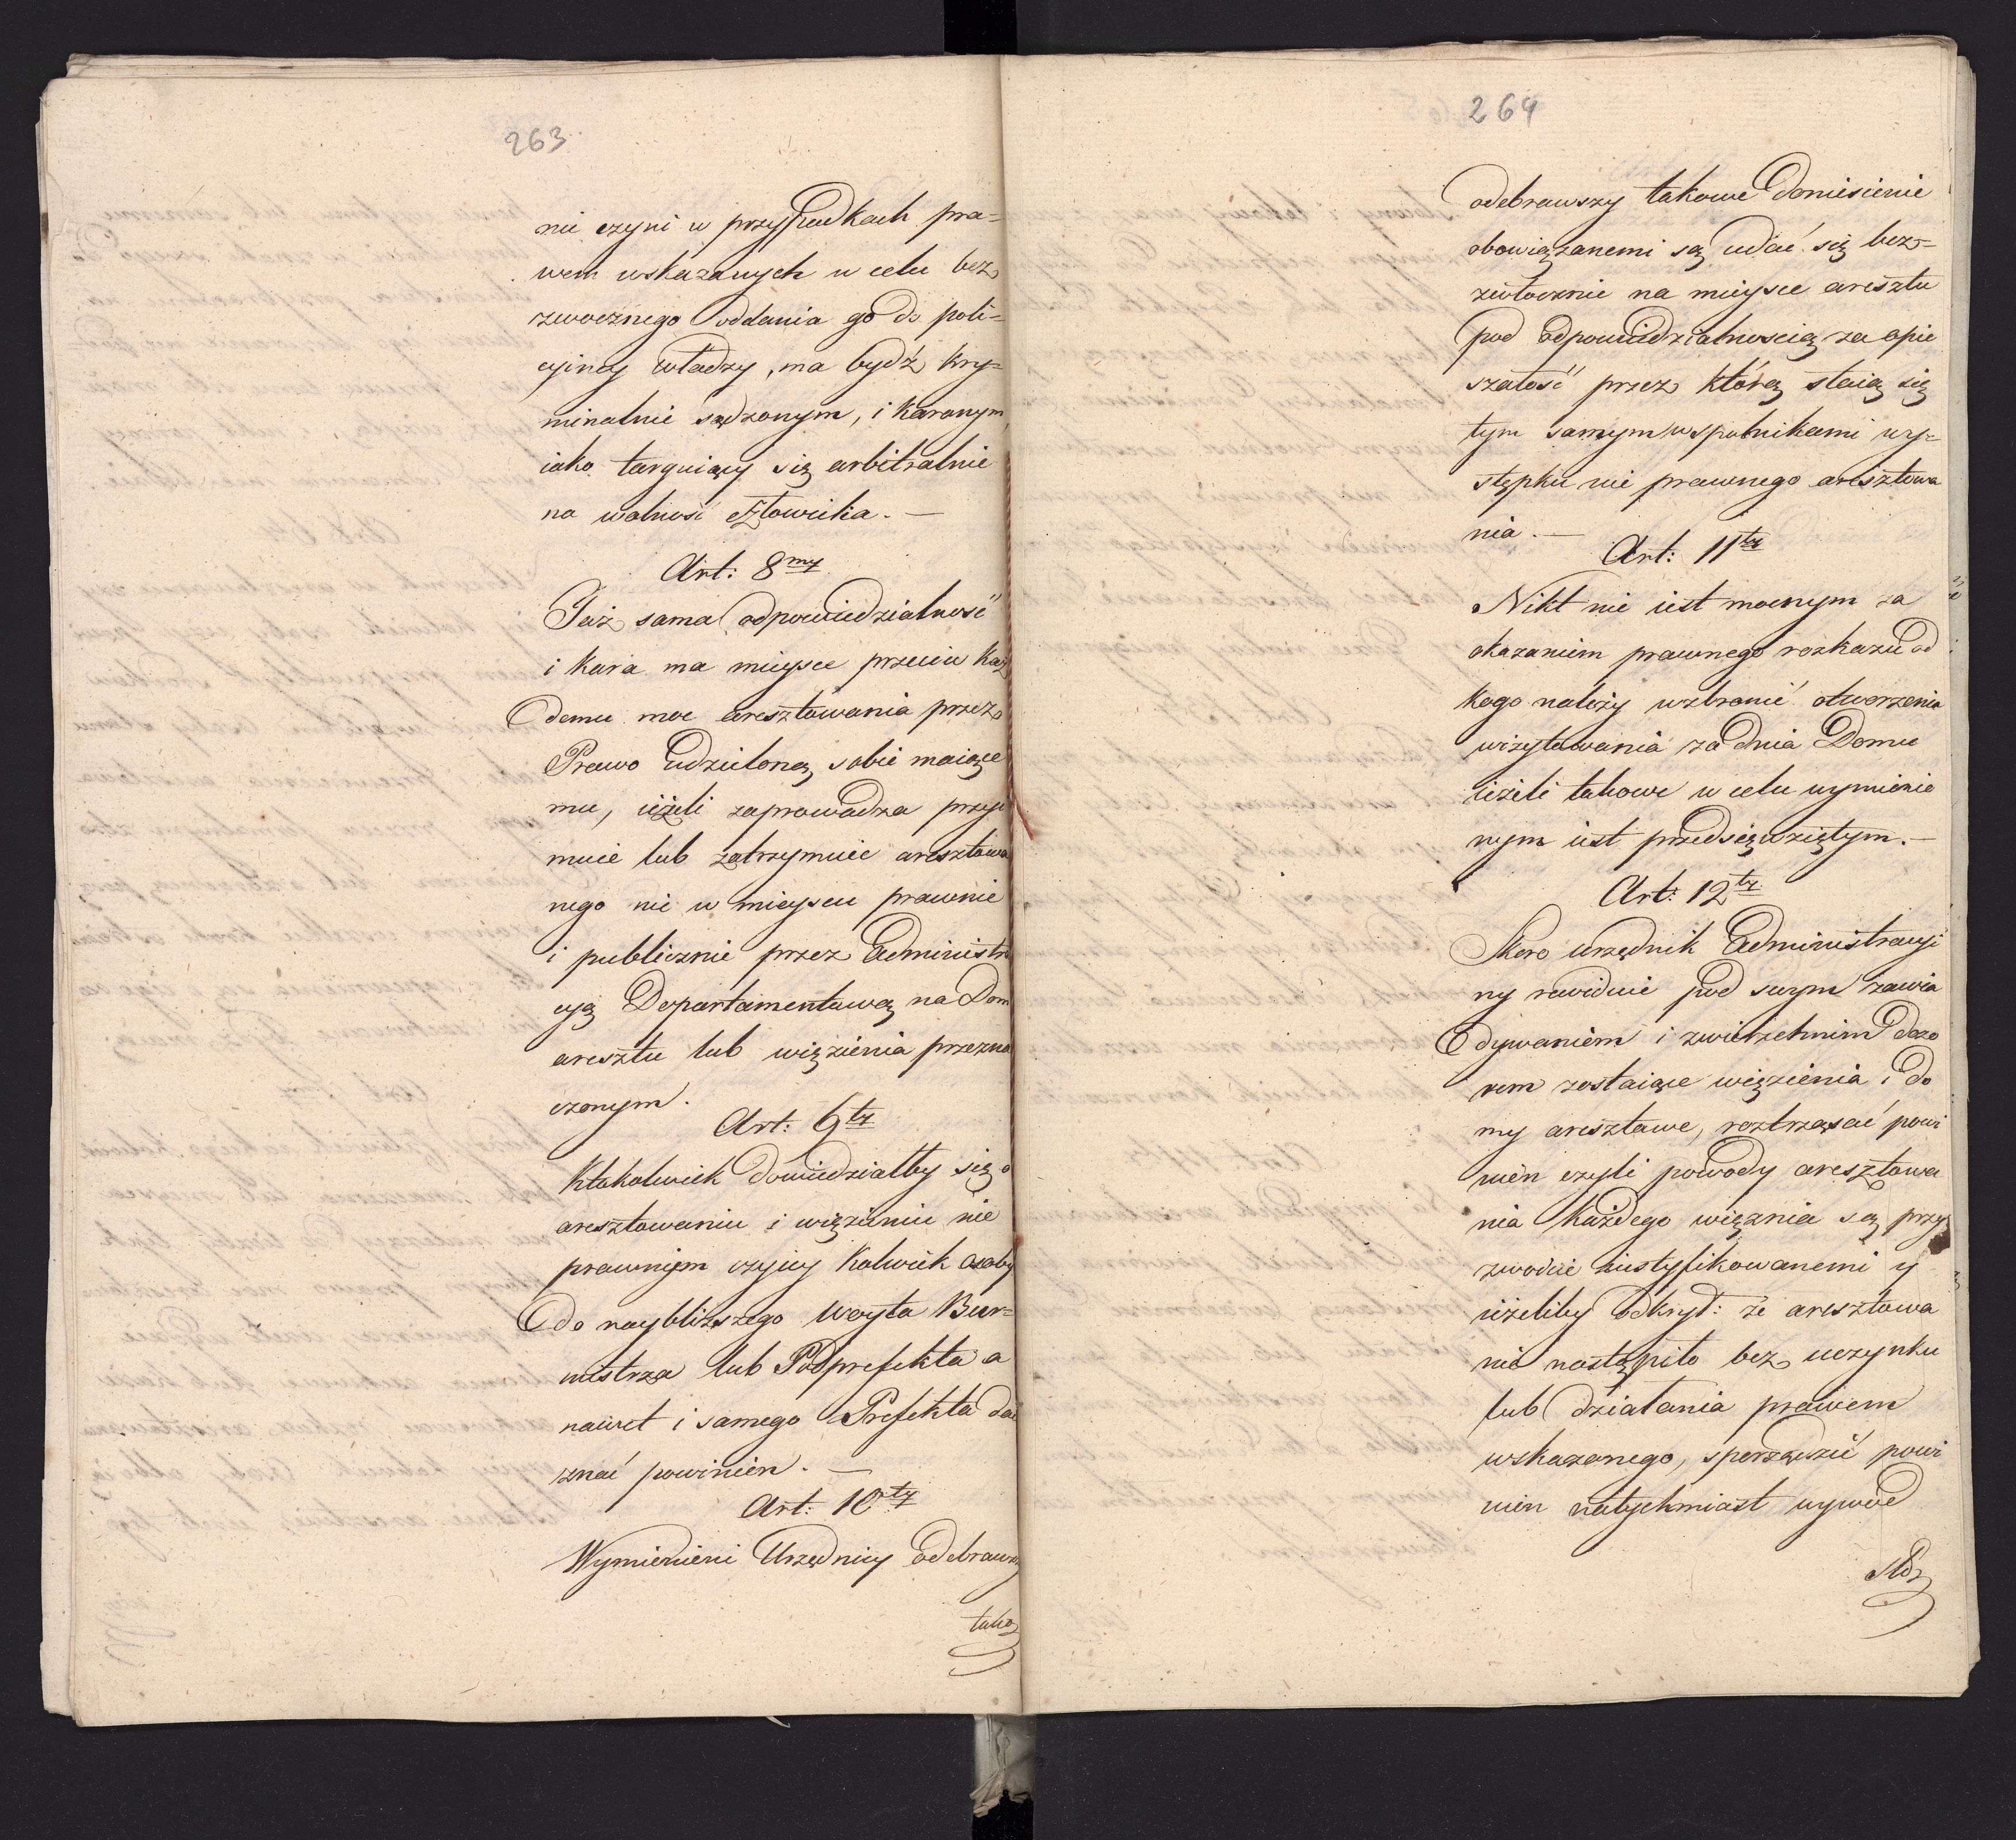 263
nie czyni w przypadkach pra=
wem wskazanych w celu bez
zwocznego oddania go do poli=
cyiney władzy, ma bydź kry=
minalnie sądzonym, i karanym
iako targuiący się arbitralnie
na wolność człowieka. —
Art: 8my
Taż sama odpowiedzialność
i kara ma mieysce przeciw każ
demu moc aresztowania przez
Prawo udzieloną sobie maiące
mu, ieżeli zaprowadza przyi
muie lub zatrzymuie aresztowa
nego nie w mieyscu prawnie
i publicznie przez Administra
cyią Departamentową na Dom
aresztu lub więzienia przezna
czonym.
Art: 9ty
Ktokolwiek dowiedziałby się o
aresztowaniu i więzieniu nie
prawnym czyiey kolwiek osoby
do naybliższego Woyta Bur=
mistrza lub Podprefekta a
nawet i samego Prefekta dać
znać powinien. —
Art: 10ty
Wymienieni Urzędnicy odebrawszy
tako
264
odebrawszy takowe doniesienie
obowiązanemi są udać się bez=
zwłocznie na mieysce aresztu
pod odpowiedzialnością za opie
szałość przez którą staią się
tym samym wspolnikami wy=
stępku nie prawnego aresztowa
nia. —
Art: 11ty
Nikt nie iest mocnym za
okazaniem prawnego rozkazu od
kogo należy wzbronić otworzenia
wizytowania za dnia Domu
ieżeli takowe w celu wymienio
nym iest przedsięwziętym. —
Art: 12ty
Skoro urzędnik Administracyi
ny rewiduie pod swym zawia
dywaniem i zwierzchnim dozo
rem zostaiące więzienia i do
my aresztowe, roztrząsać powi
nien czyli powody aresztowa
nia każdego więznia są przy
zwoicie iustyfikowanemi y
ieżeliby odkrył: że aresztowa
nie nastąpiło bez uczynku
lub działania prawem
wskazanego, sporządzić powi
nien natychmiast wywód